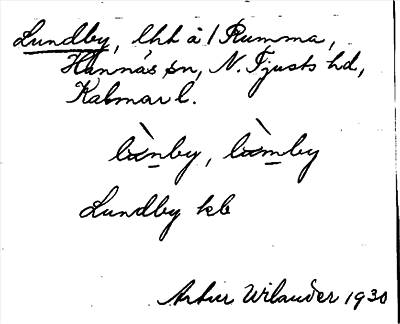 Lundby, lht å 1 Rumma,
Hannäs sn, N. Tjusts hd,
Kalmar l.
Lundby kb
Artur Wilander 1930